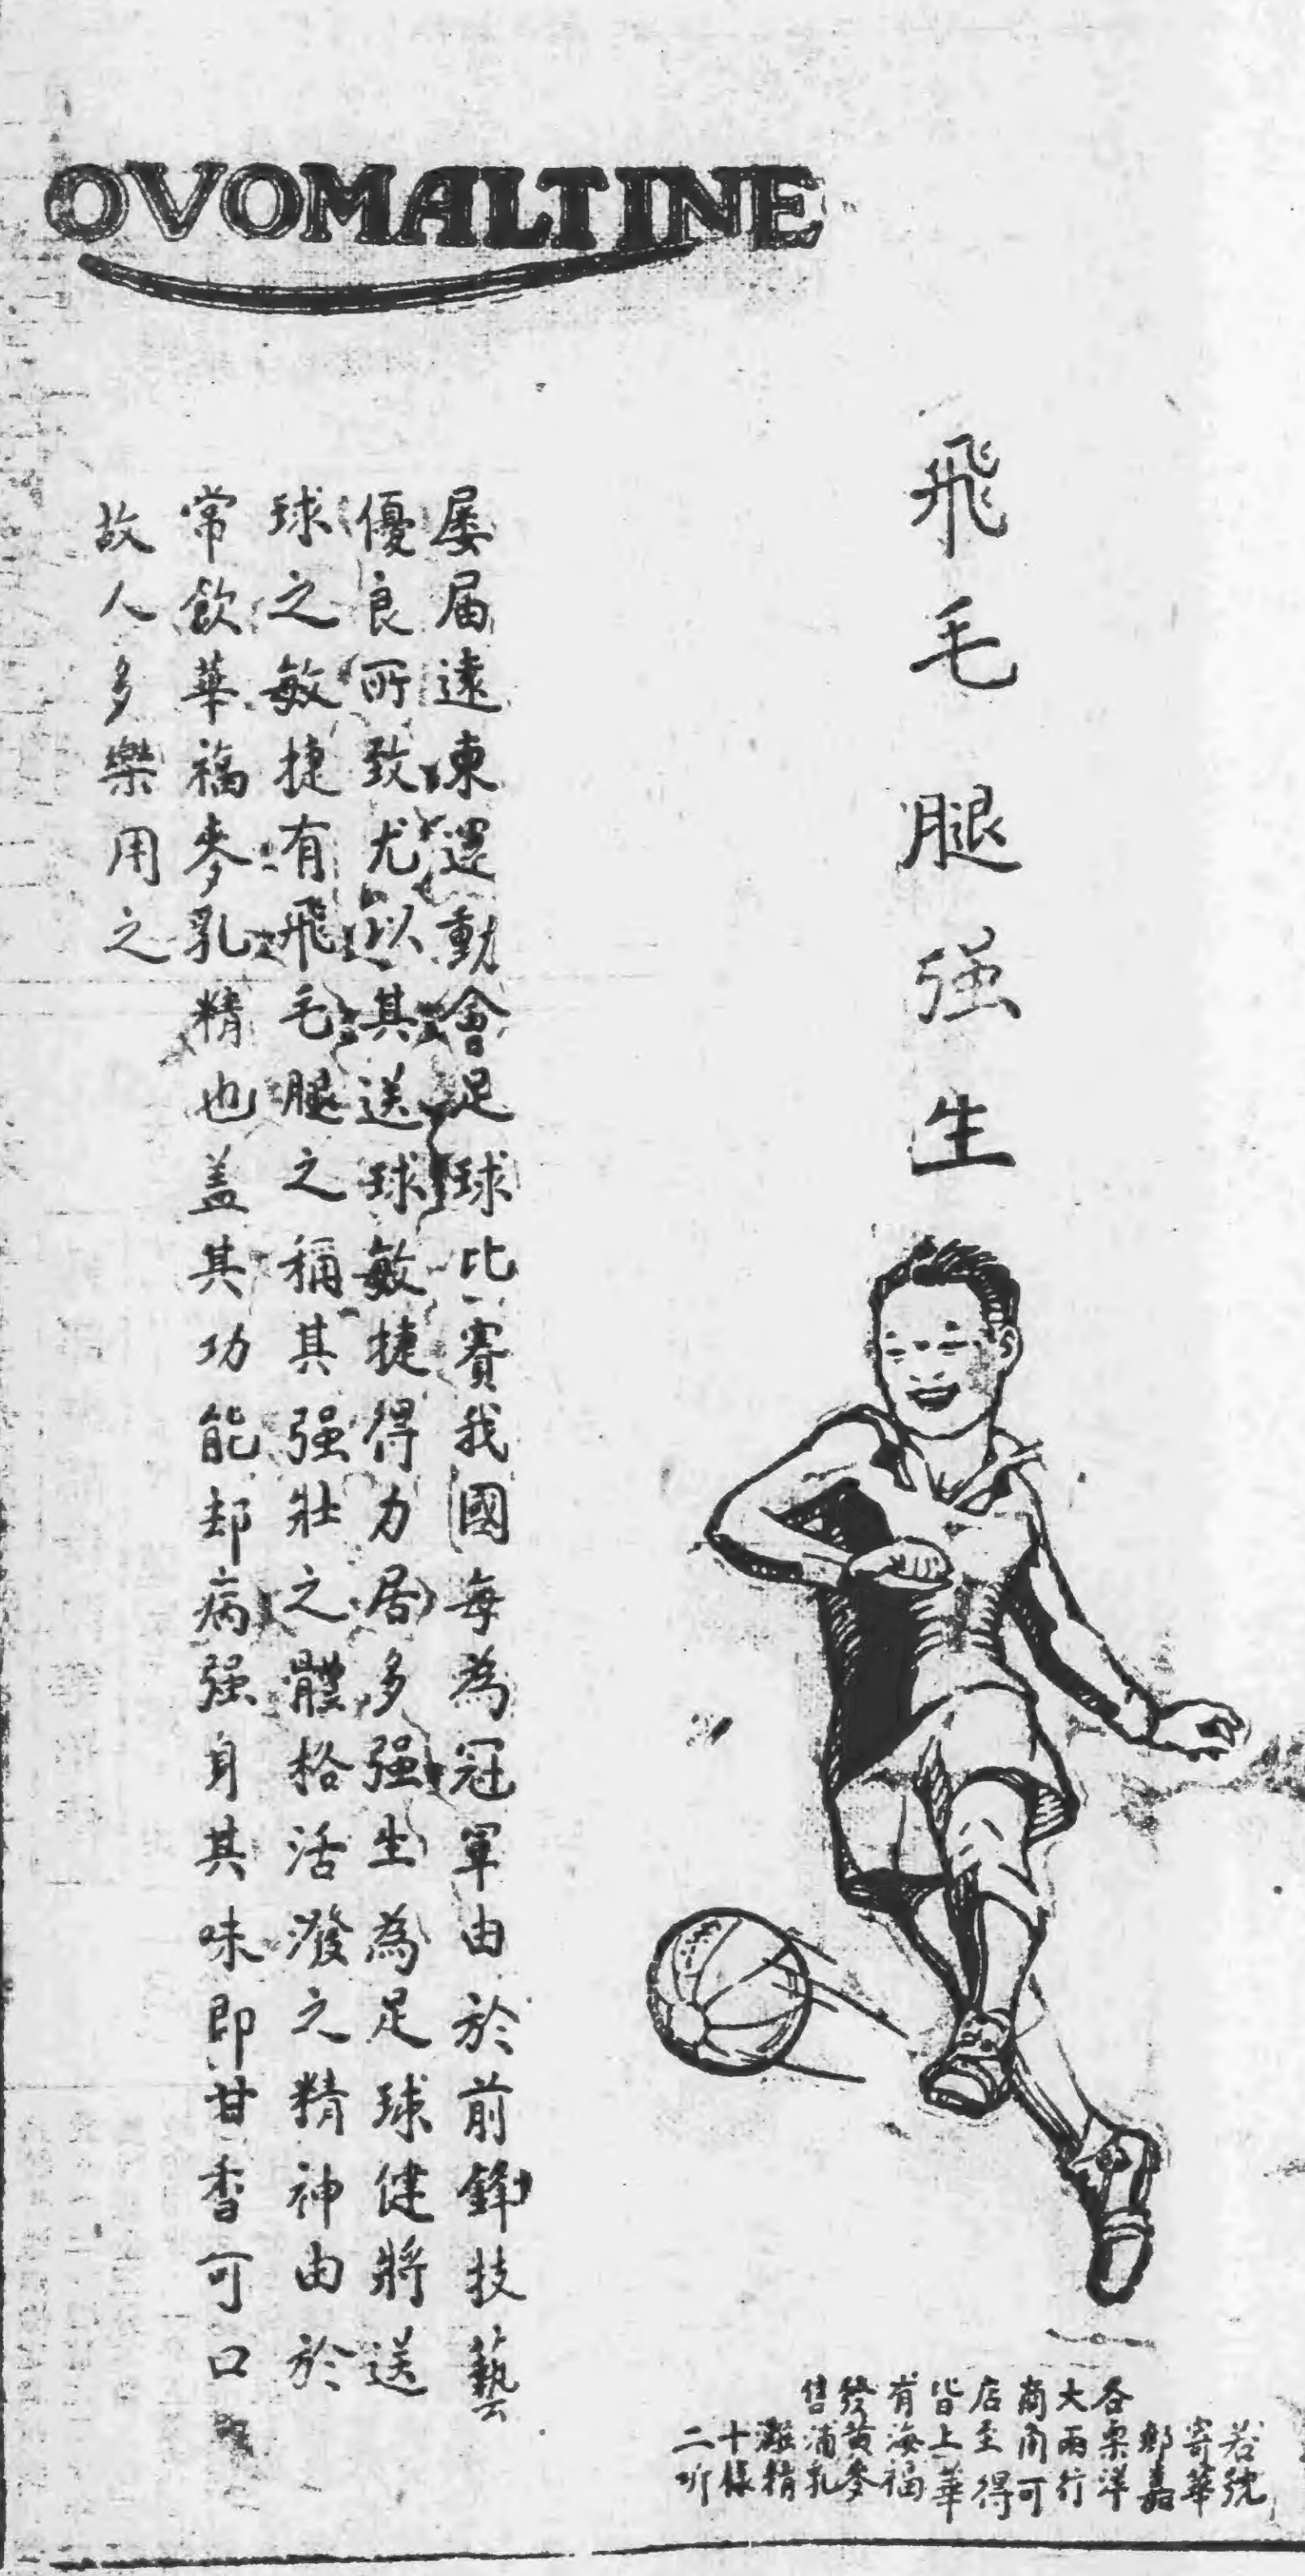 OVOMALTINE
飛毛腿强生
屡届遠東運動會足球比賽我國每為冠軍由於前鋒技藝
優良所致尤以其送球敏捷得力居多强生為足球健將送
球之敏捷有飛毛腿之稱其强壯之體格活潑之精神由於
常飲華福麥乳精也盖其功能却病强身其味即甘香可口
故人多樂用之
各大商店皆有發售
若寄郵票兩角至上海黃浦灘十二
號華嘉洋行可得華福麥乳精樣听